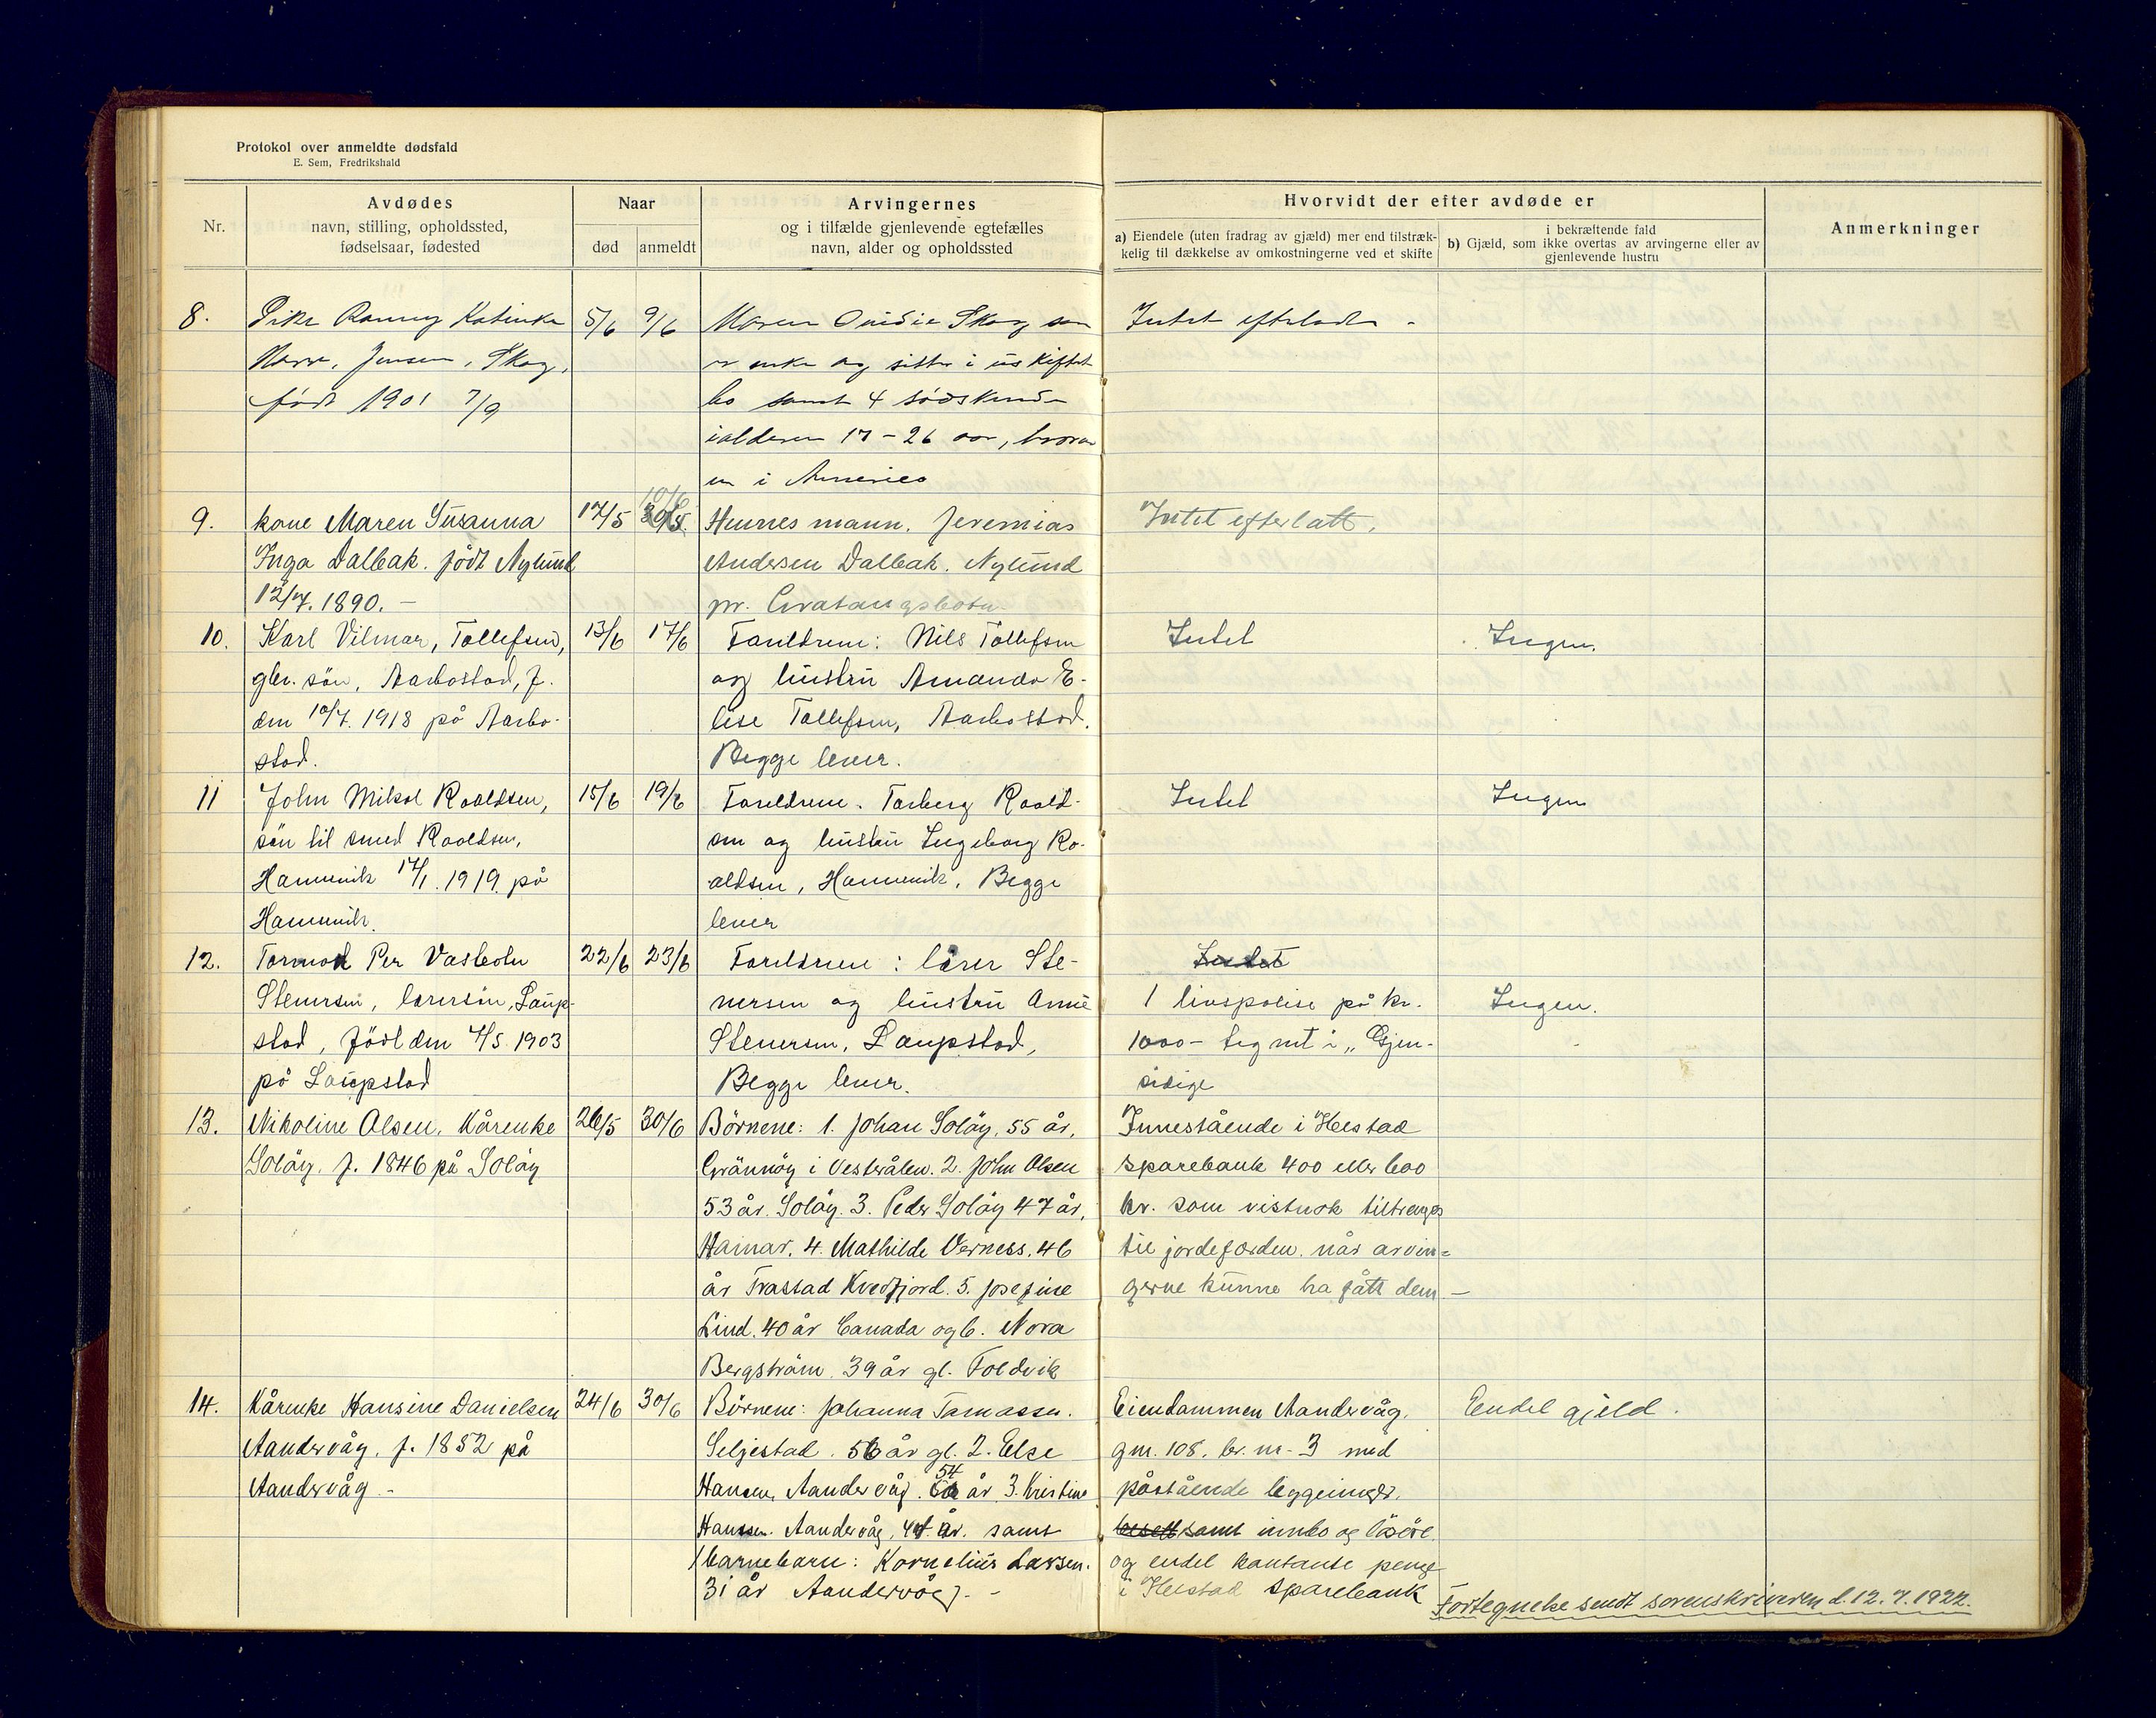 Protokol over anmeldte dødsfald
E. Sem, Fredrikshald
Nr.
Avdødes
navn, stilling, opholdssted,
fødselsaar, fødested
Naar
død
anmeldt
Arvingernes
og i tilfælde gjenlevende egtefælles
navn, alder og opholdssted
Hvorvidt der efter avdøde er
a) Eiendele (uten fradrag av gjæld) mer end tilstræk-
kelig til dækkelse av omkostningerne ved et skifte
i bekræftende fald
b) Gjæld, som ikke overtas av arvingerne eller av
gjenlevende hustru
Anmerkninger
8.
Pike Ranny Katinka
Jensen, Skog,
født 1901 7/9
5/6
9/6
Maren Ovidie Skog som
er enke og sitter i uskiftet
bo samt 4 södskende
i alderen 17-26 aar, hvorav
en i America
Intet efterladt -
9.
kone Maren Susanna
Inga Dalbak. født Nylund
12/7. 1890. -
17/5
10/6
Hennes mann. Jeremias
Andersen Dalbak. Nylund
pr. Gratangsbotn
Intet efterlatt.
10.
Karl Vilmar, Tollefsen,
gbr. sön, Aarbostad, f.
den 10/7. 1918 på Aarbo-
stad.
13/6
17/6
Foreldrene: Nils Tollefsen
og hustru Amanda E-
lise Tollefsen, Aarbostad.
Begge lever.
Intet
Ingen.
11
John Mikal Roaldsen,
sön til smed Roaldsen,
Hamnvik 17/1. 1919. på
Hamnvik.
15/6
19/6
Foreldrene. Torberg Roald-
sen og hustru Ingeborg Ro-
aldsen, Hamnvik. Begge
lever
Intet
Ingen
12.
Tormod Per Vasbotn
Stenersen, lærersön, Laup-
stad, född den 7/5 1903
på Laupstad
22/6
23/6
Foreldrene: lærer Ste-
nersen og hustru Anne
Stenersen, Laupstad,
Begge lever.
Intet
1 livspolise på kr.
1000- tegnet i „Gjen-
sidige
Ingen.
13.
Nikoline Olsen. Kårenke
Soløy. f. 1846 på Soløy
26/5
30/6
Börnene: 1. Johan Soløy. 55 år.
Grännöy i Vesterålen. 2. John Olsen
53 år. Soløy. 3. Peder Soløy 47 år.
Hamar. 4. Mathilde Verness. 46
år Trastad Kvedfjord. 5. Josefine
Lind. 40 år Canada og 6. Nora
Bergström. 39 år gl. Foldvik
Innestående i Ibestad
sparebank 400 eller 600
kr. som vistnok tiltrenges
til jordeferden. når arvin=
gerne kunne ha fått dem. -
14.
Kårenke Hansine Danielsen
Aandervåg. f. 1832 på
Aandervåg. -
24/6
30/6
Börnene: Johanna Tomassen.
Seljestad. 56 år gl. 2. Else
Hansen, Aandervåg. 54 år. 3. Kristine
Hansen. Aandervåg, 44. år. samt
1 barnebarn: Kornelius Larsen.
31 år Aandervåg. -
Eiendommen Aandervåg.
gnr. 108. br. nr. 3 med
påstående byggninger.
samt innbo og lösöre
og endel kontante penge
i Ibestad sparebank
Endel gjeld.
Fortegnelse sendt sorenskriveren d. 12. 7. 1922.